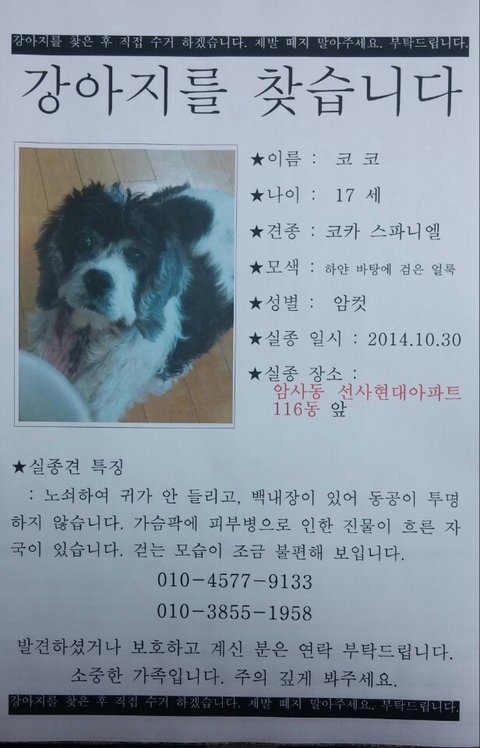 강아지를 찾은 후 직접 수거 하겠습니다. 제발 떼지 말아주세요. 부탁드립니다.
강아지를 찾습니다
★이름 : 코 코
★나이 : 17 세
★견종 : 코카 스파니엘
★모색 : 하얀 바탕에 검은 얼룩
★성별 : 암컷
★실종 일시 : 2014.10.30
★실종 장소 :
암사동 선사현대아파트
116동 앞
★실종견 특징
: 노쇠하여 귀가 안 들리고, 백내장이 있어 동공이 투명
하지 않습니다. 가슴팍에 피부병으로 인한 진물이 흐른 자
국이 있습니다. 걷는 모습이 조금 불편해 보입니다.
010-4577-9133
010-3855-1958
발견하셨거나 보호하고 계신 분은 연락 부탁드립니다.
소중한 가족입니다. 주의 깊게 봐주세요.
강아지를 찾은 후 직접 수거 하겠습니다. 제발 떼지 말아주세요. 부탁드립니다.